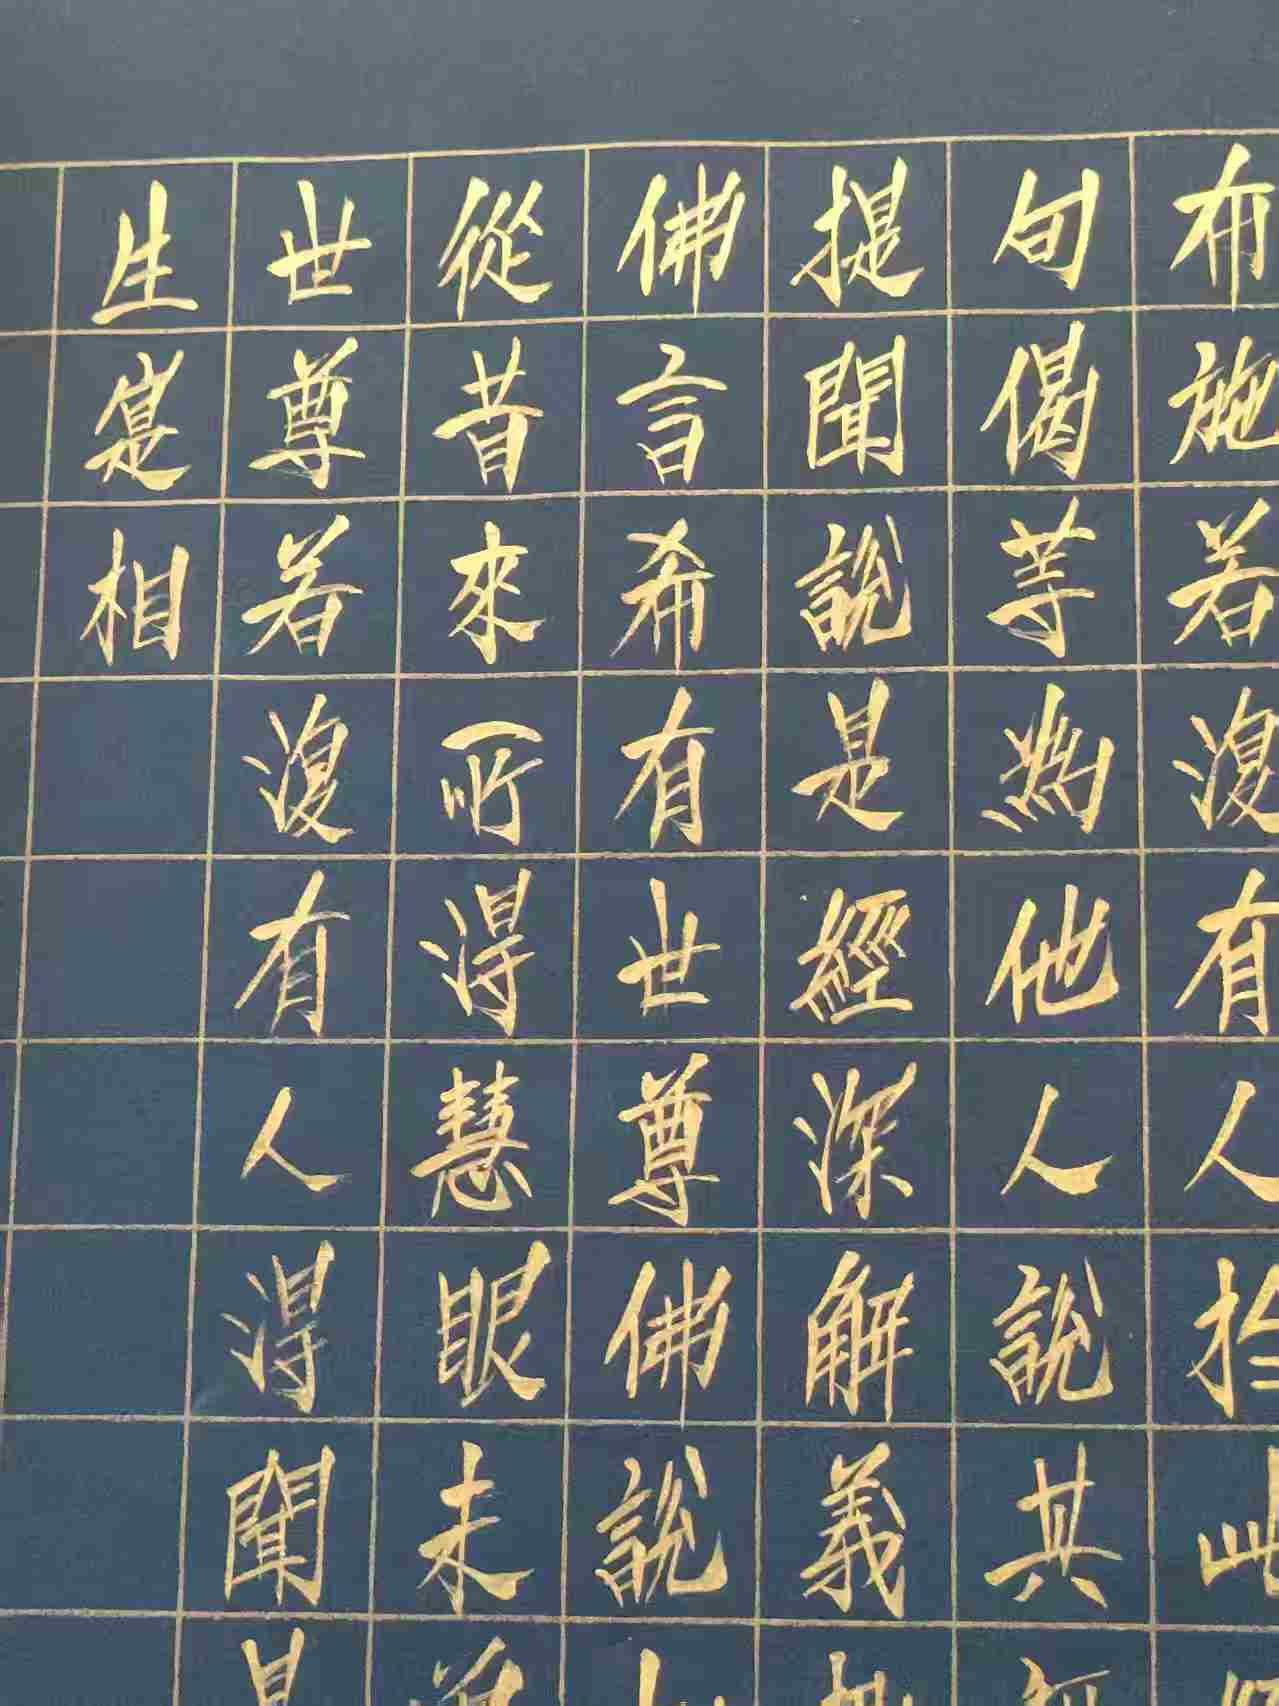 布施若復有人於此
句偈等為他人說其
提聞說是經深解義
佛言希有世尊佛說
從昔來所得慧眼未
世尊若復有人得聞是
生寔相